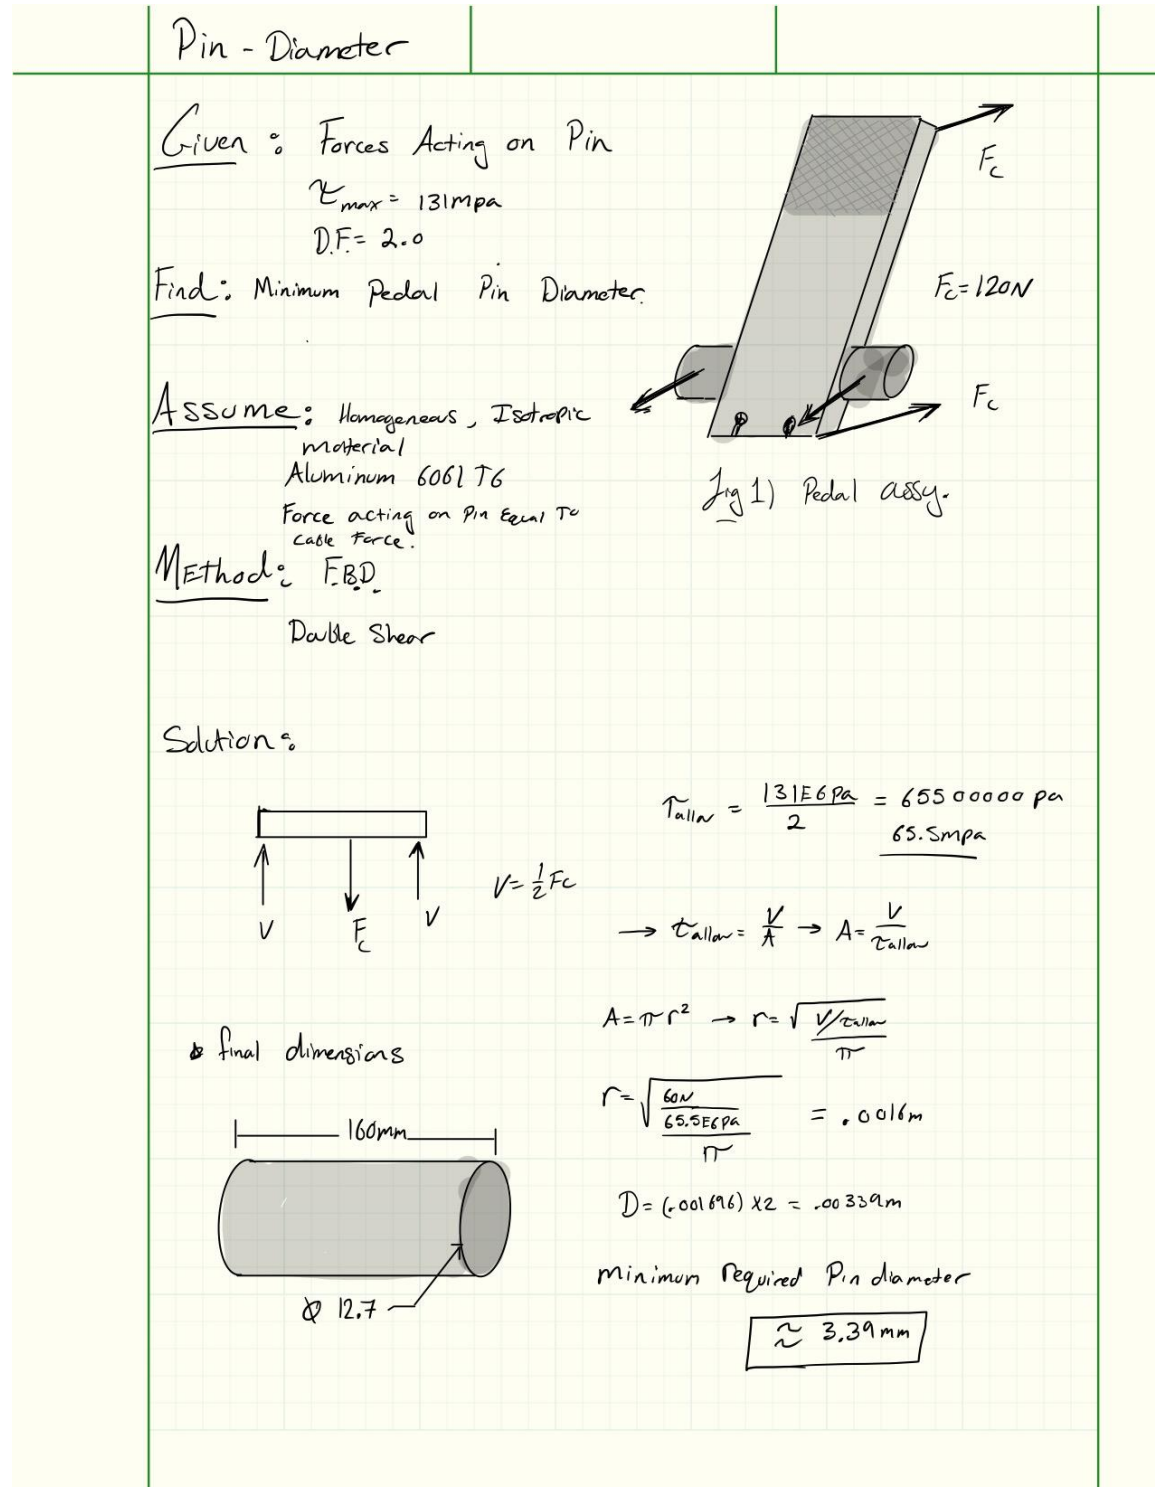 Pin - Diameter
Given: Forces Acting on Pin
τmax = 131mpa
D.F. = 2.0
Find: Minimum Pedal Pin Diameter.
Assume: Homogeneous, Isotropic
material
Aluminum 6061 T6
Force acting on Pin Equal To
Cable Force.
Method: F.B.D.
Double Shear
Fc
Fc = 120N
Fc
fig 1) Pedal assy.
Solution:
V
Fc
V
V = 1/2 Fc
τallow = 131E6pa / 2 = 65500000 pa
65.5mpa
→ τallow = V/A → A = V/τallow
A = πr² → r = √((V/τallow)/π)
r = √((60N/65.5E6pa)/π) = .0016m
D = (.001696) x2 = .00339m
minimum required Pin diameter
≈ 3.39mm
final dimensions
160mm
Ø 12.7